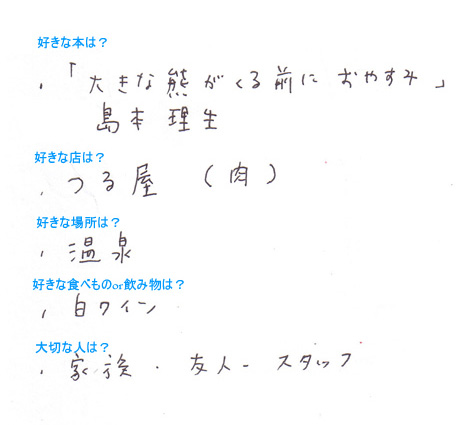 好きな本は?
、「大きな熊がくる前に おやすみ」
島本理生
好きな店は?
、つる屋 (肉)
好きな場所は?
、温泉
好きな食べものor飲み物は?
、白ワイン
大切な人は?
、家族・友人-スタッフ